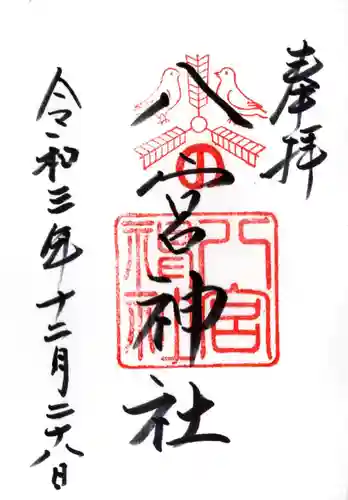 奉拝
八宮神社
八宮神社
令和三年十二月二十八日